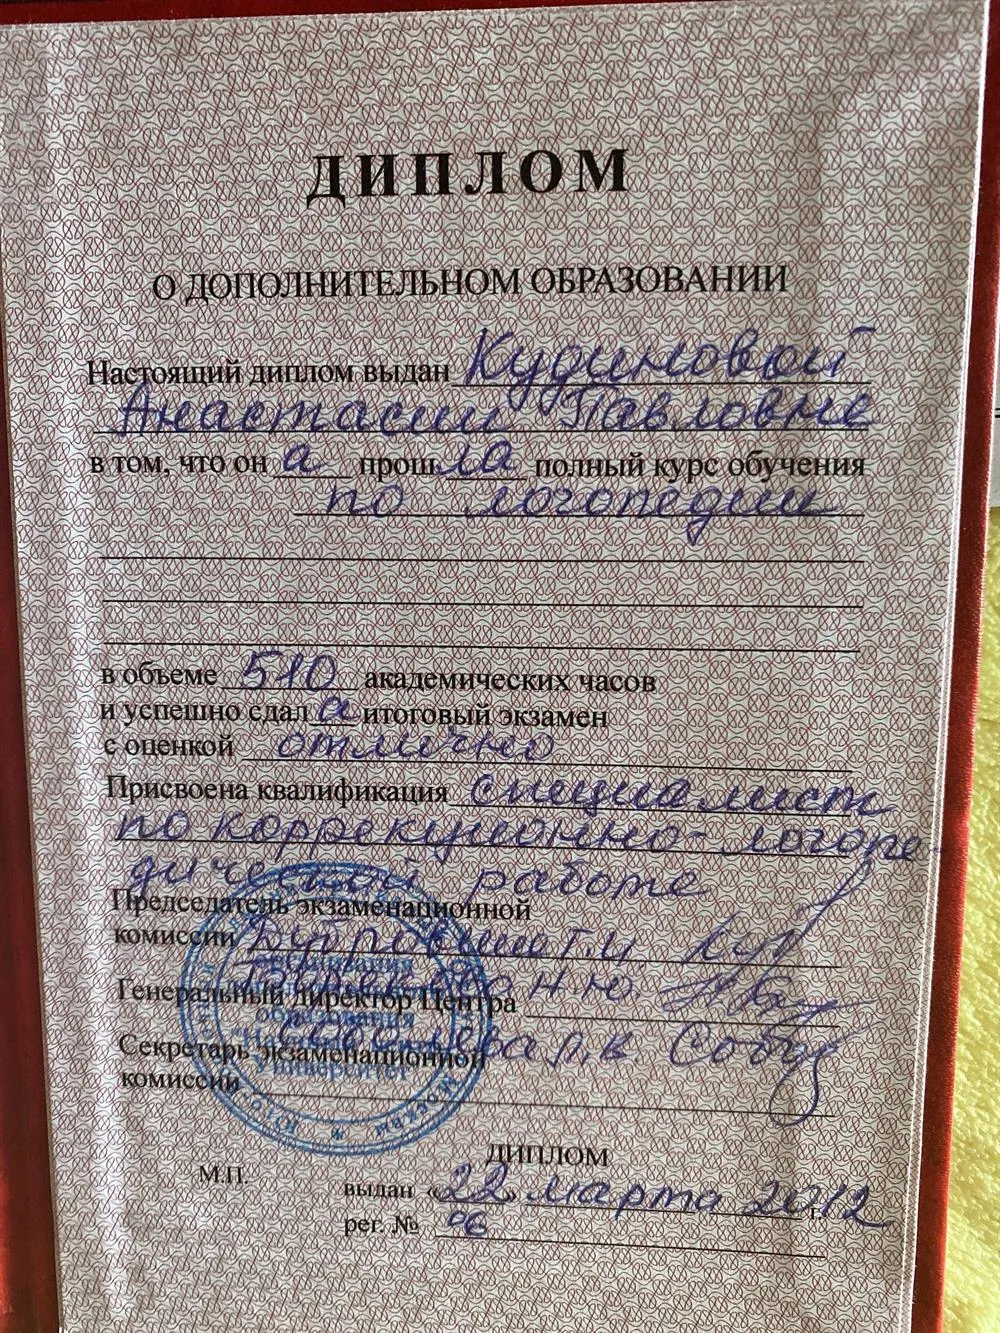 ДИПЛОМ
О ДОПОЛНИТЕЛЬНОМ ОБРАЗОВАНИИ
Настоящий диплом выдан Кудиновой
Анастасии Павловне
в том, что он а прош ла полный курс обучения
по логопедии
в объеме 510 академических часов
и успешно сдал а итоговый экзамен
с оценкой отлично
Присвоена квалификация специалист
по коррекционно-логопе-
дической работе
Председатель экзаменационной
комиссии Дубровина Т.И.
Генеральный директор Центра Н.Ю.
Секретарь экзаменационной
комиссии
образования
Университет
Москва
М.П.
ДИПЛОМ
выдан «22» марта 2012 г.
рег. № 06